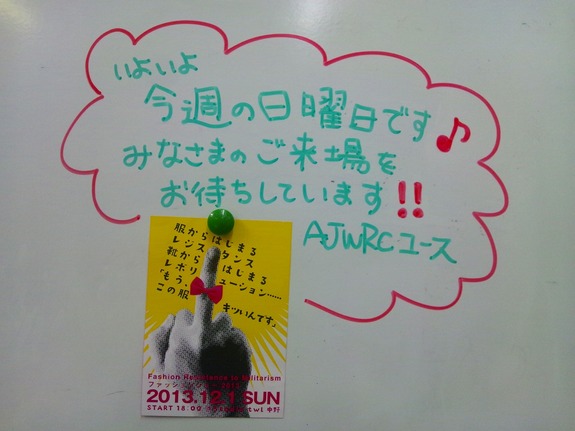 いよいよ
今週の日曜日です♪
みなさまのご来場を
お待ちしています!!
AJWRCユース
服からはじまる
レジスタンス
靴からはじまる
レボリューション……
「もう、
この服 キツいんです」
Fashion Resistance to Militarism
ファッションショー
2013.12.1 SUN
START 18:00 中野